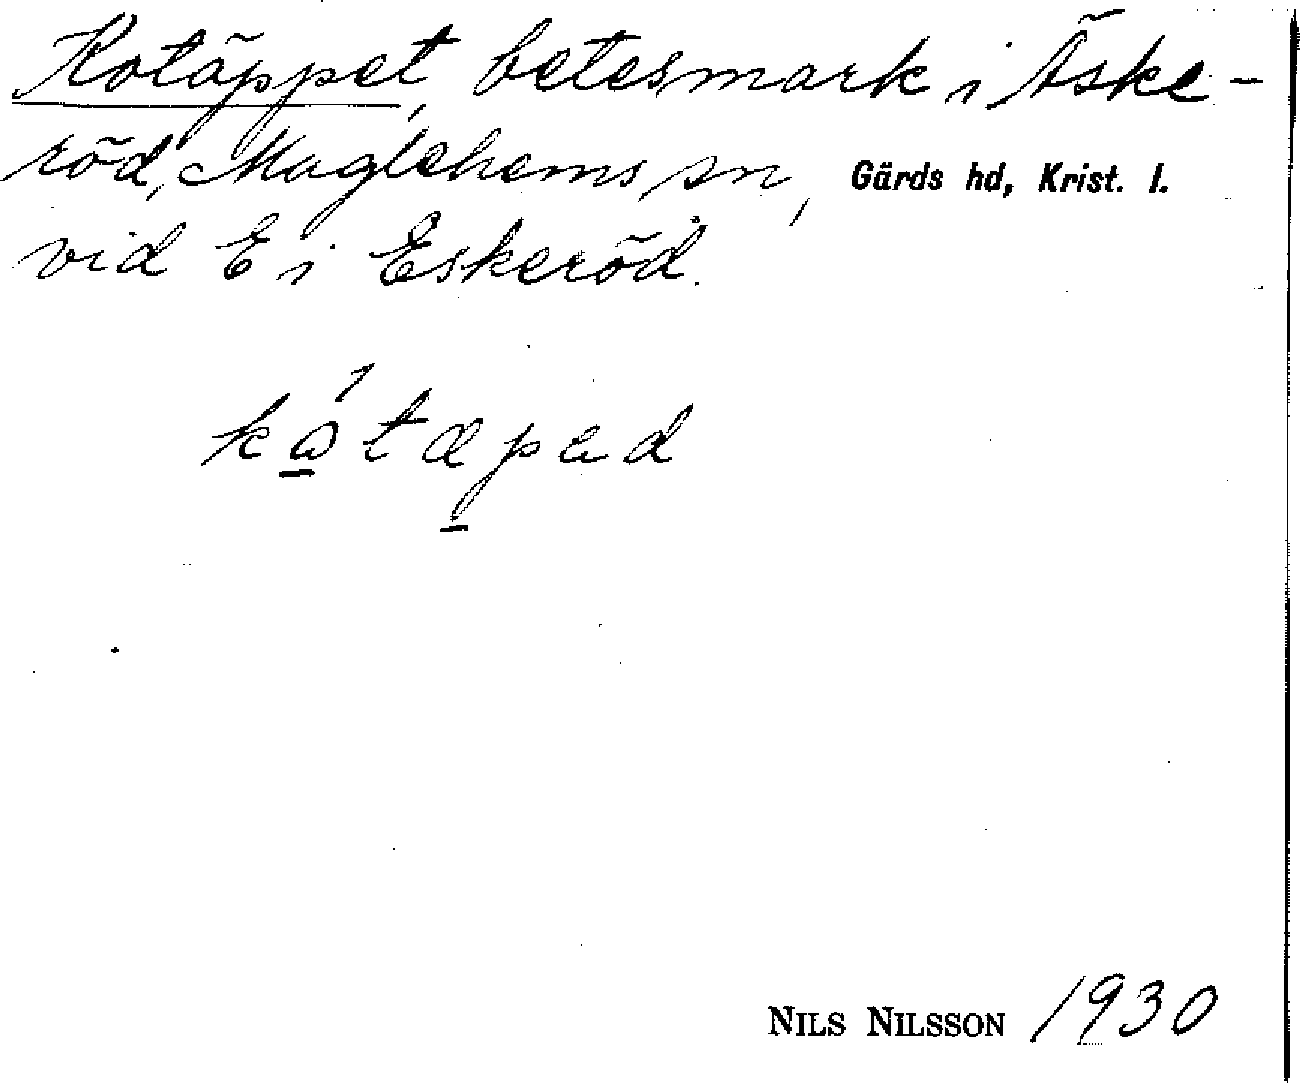 Kotäppet, betesmark i Äske-
röd, Maglehems sn, Gärds hd, Krist. l.
vid E i Eskeröd.
NILS NILSSON 1930